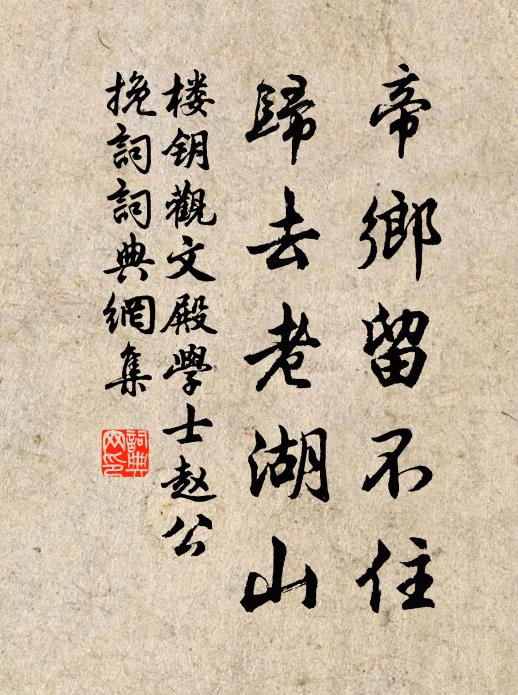 帝鄉留不住
歸去老湖山
楼钥觀文殿學士赵公
挽詞詞典網集
詞典网印